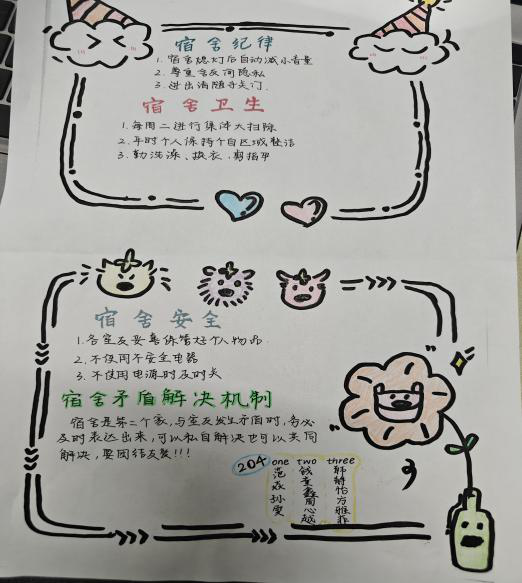 宿舍纪律
1. 宿舍熄灯后自动减小音量
2. 尊重舍友间隐私
3. 进出请随手关门.
宿舍卫生
1. 每周二进行集体大扫除
2. 平时个人保持个自区域整洁
3. 勤洗澡、换衣，剪指甲
宿舍安全
1. 各室友妥善保管好个人物品.
2. 不使用不安全电器
3. 不使用电源时及时关
宿舍矛盾解决机制
宿舍是第二个家，与室友发生矛盾时，务必
及时表达出来，可以私自解决也可以共同
解决，要团结友爱!!!
204
one two three